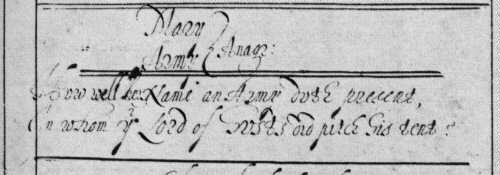 Mary
Army } Anagr:
How well her Name an Army doth present,
In whom ye Lord of Hosts did pitch his tent: